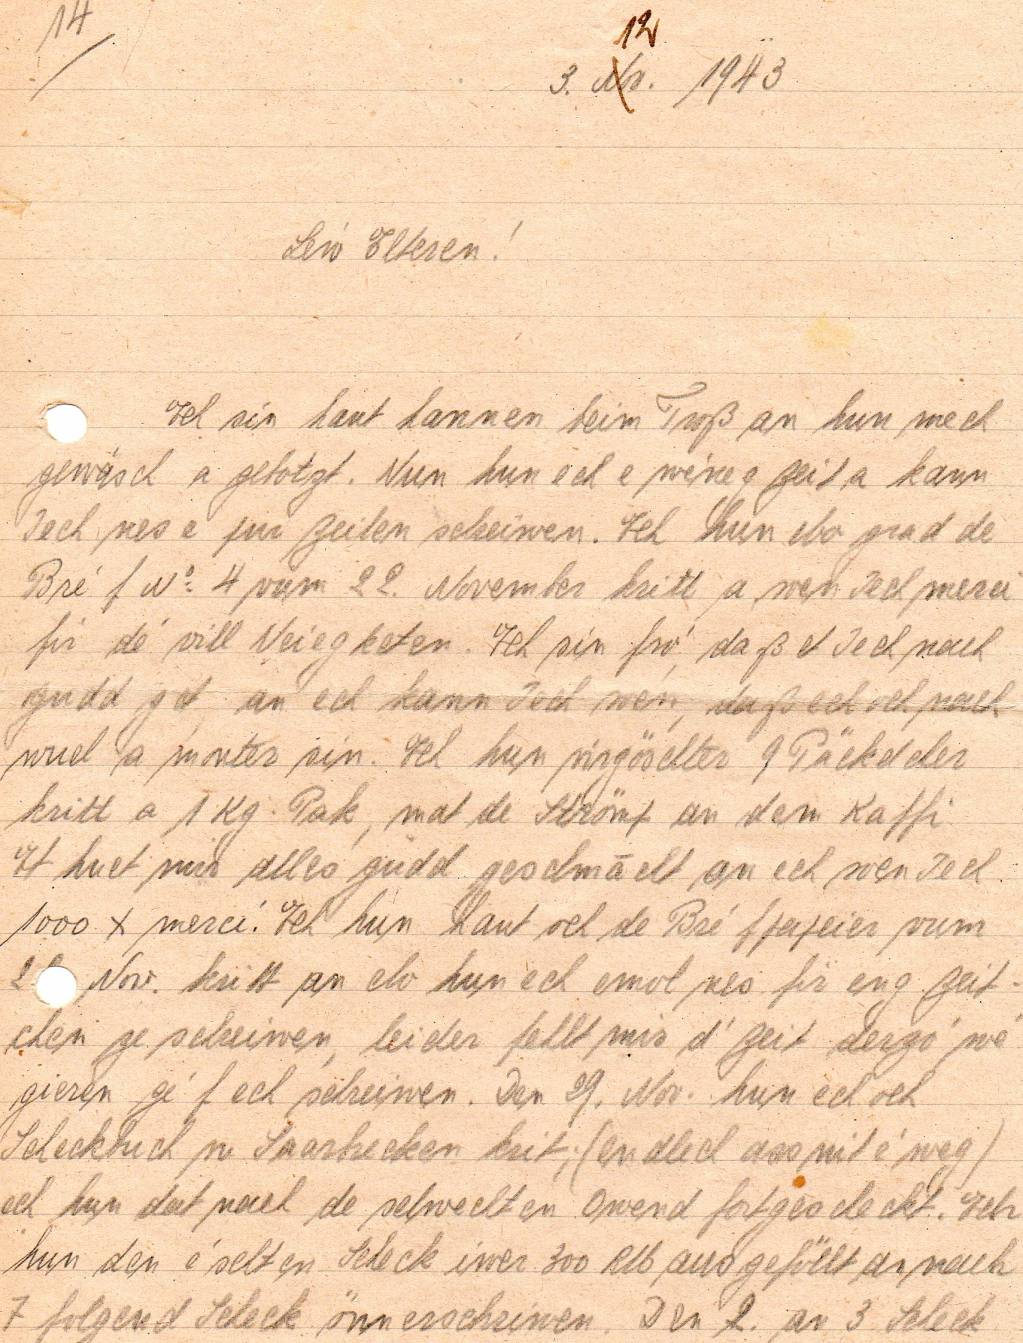 14
12
3. Nv. 1943
Léiw Elteren!
Ech sin haut hannen beim Troß an hun mech
gewäsch a gebotzt. Nun hun ech e wéneg Zeit a kann
Iech nes e pur Zeilen schreiwen. Ech hun ebo grad de
Bréf No: 4 vum 22. November kritt a soen Iech merci
fir dé vill Neiegketen. Ech sin fro, daß et Iech nach
gudd get an ech kann Iech soen, daß ech och nach
wuel a monter sin. Ech hun virgöschter 9 Päckdcher
kritt a 1 Kg. Pak, mat de Strömp an dem Kaffi
Et huet mir alles gudd geschmächt an ech soen Iech
1000 x merci. Ech hun haut och de Bréfpapeier vum
Nov. kritt an elo hun ech emol nes fir eng Zeit-
chen ze schreiwen, leider fellt mir d' Zeit derzo wé
gieren géf ech schreiwen. Den 29. Nov. hun ech och
Scheckbuch v. Saarbrecken krit, (endlech ass mit é weg)
ech hun dat nach de selwechten Owend fortgescheckt. Ech
hun den éschten Scheck iwer 300 RM ausgeföllt an nach
7 folgend Scheck önnerschriwen. Den 2. an 3 Scheck